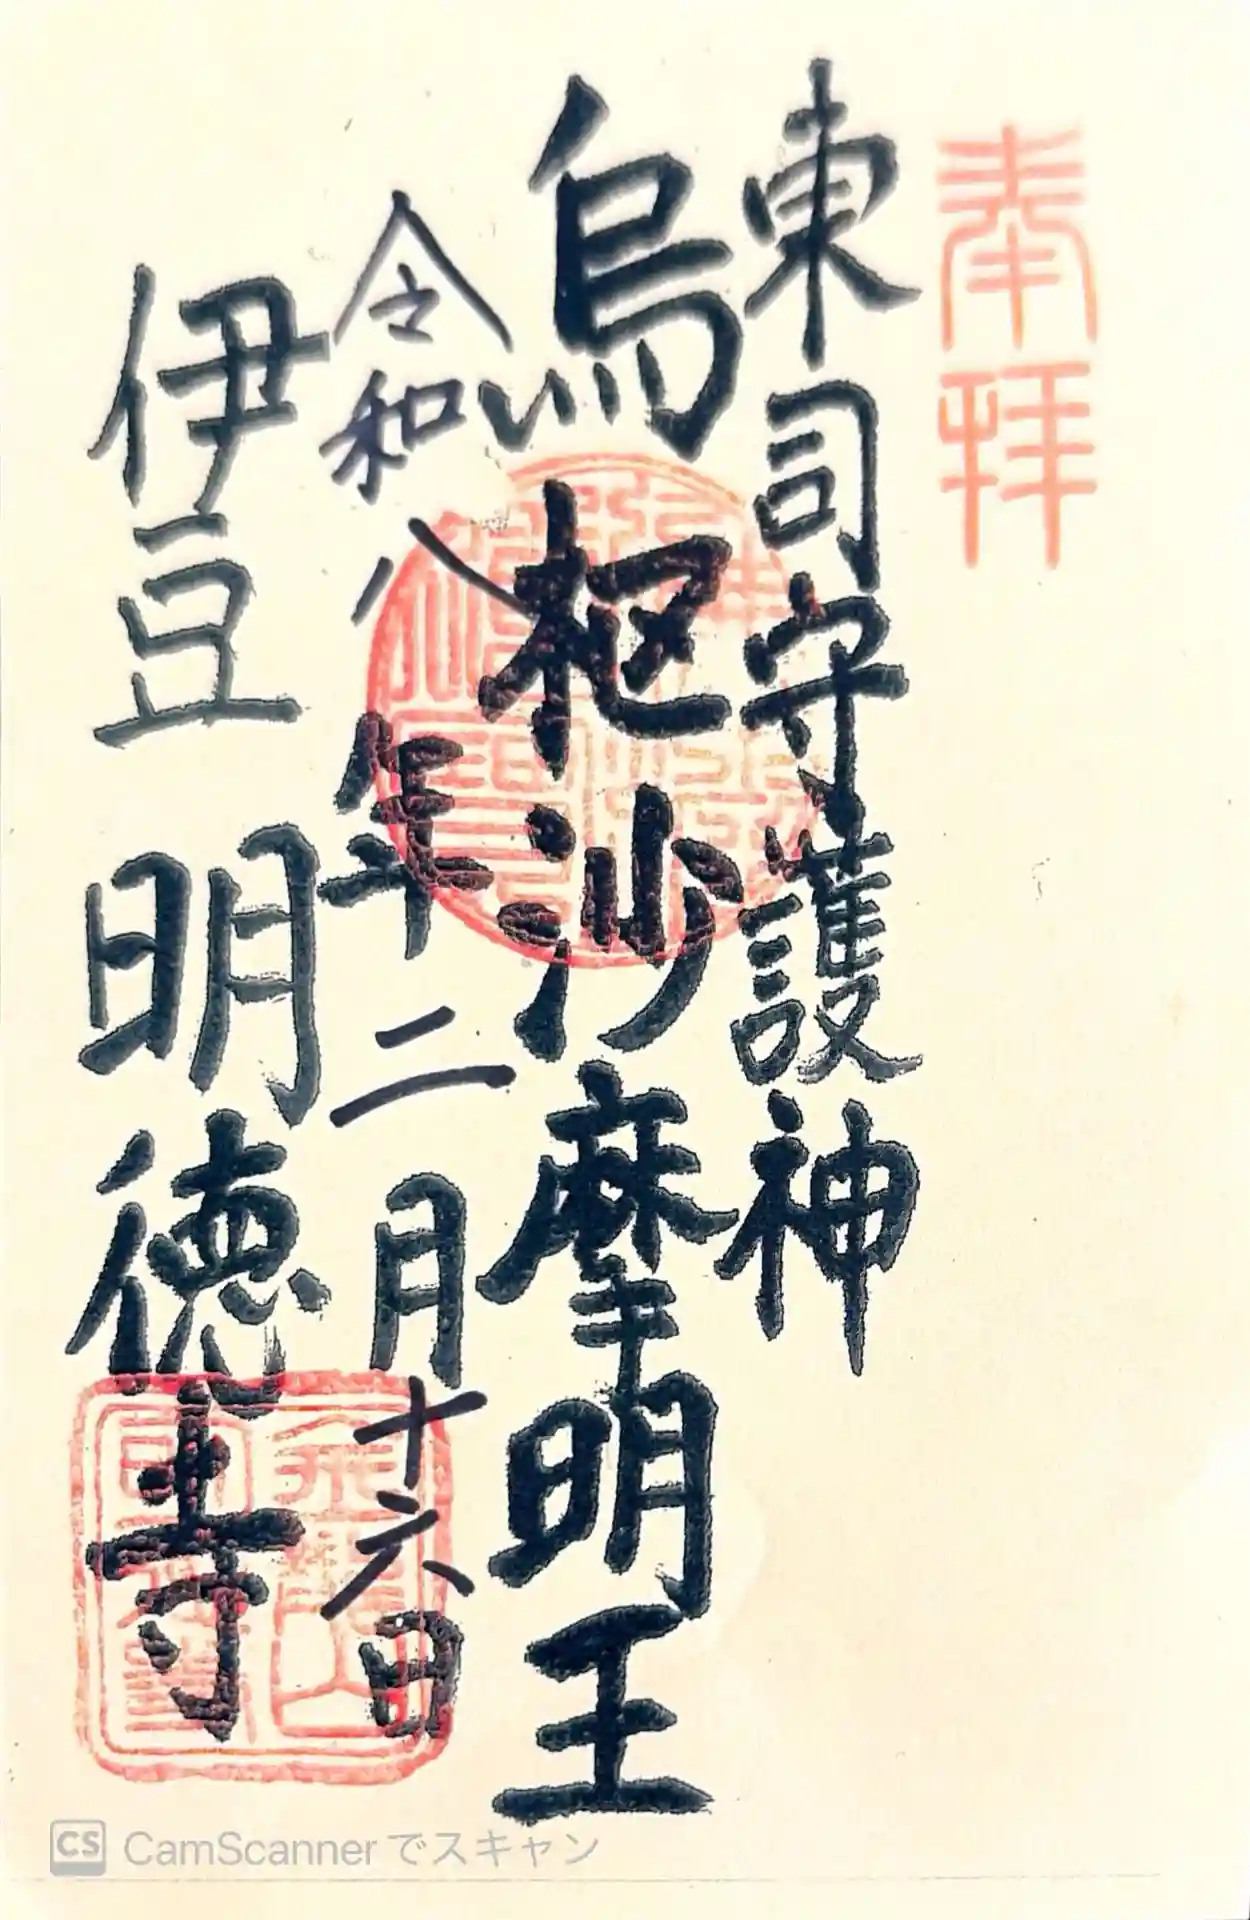 奉拝
東司守護神
烏枢沙摩明王
令和八年二月十六日
伊豆 明徳寺
CS CamScannerでスキャン